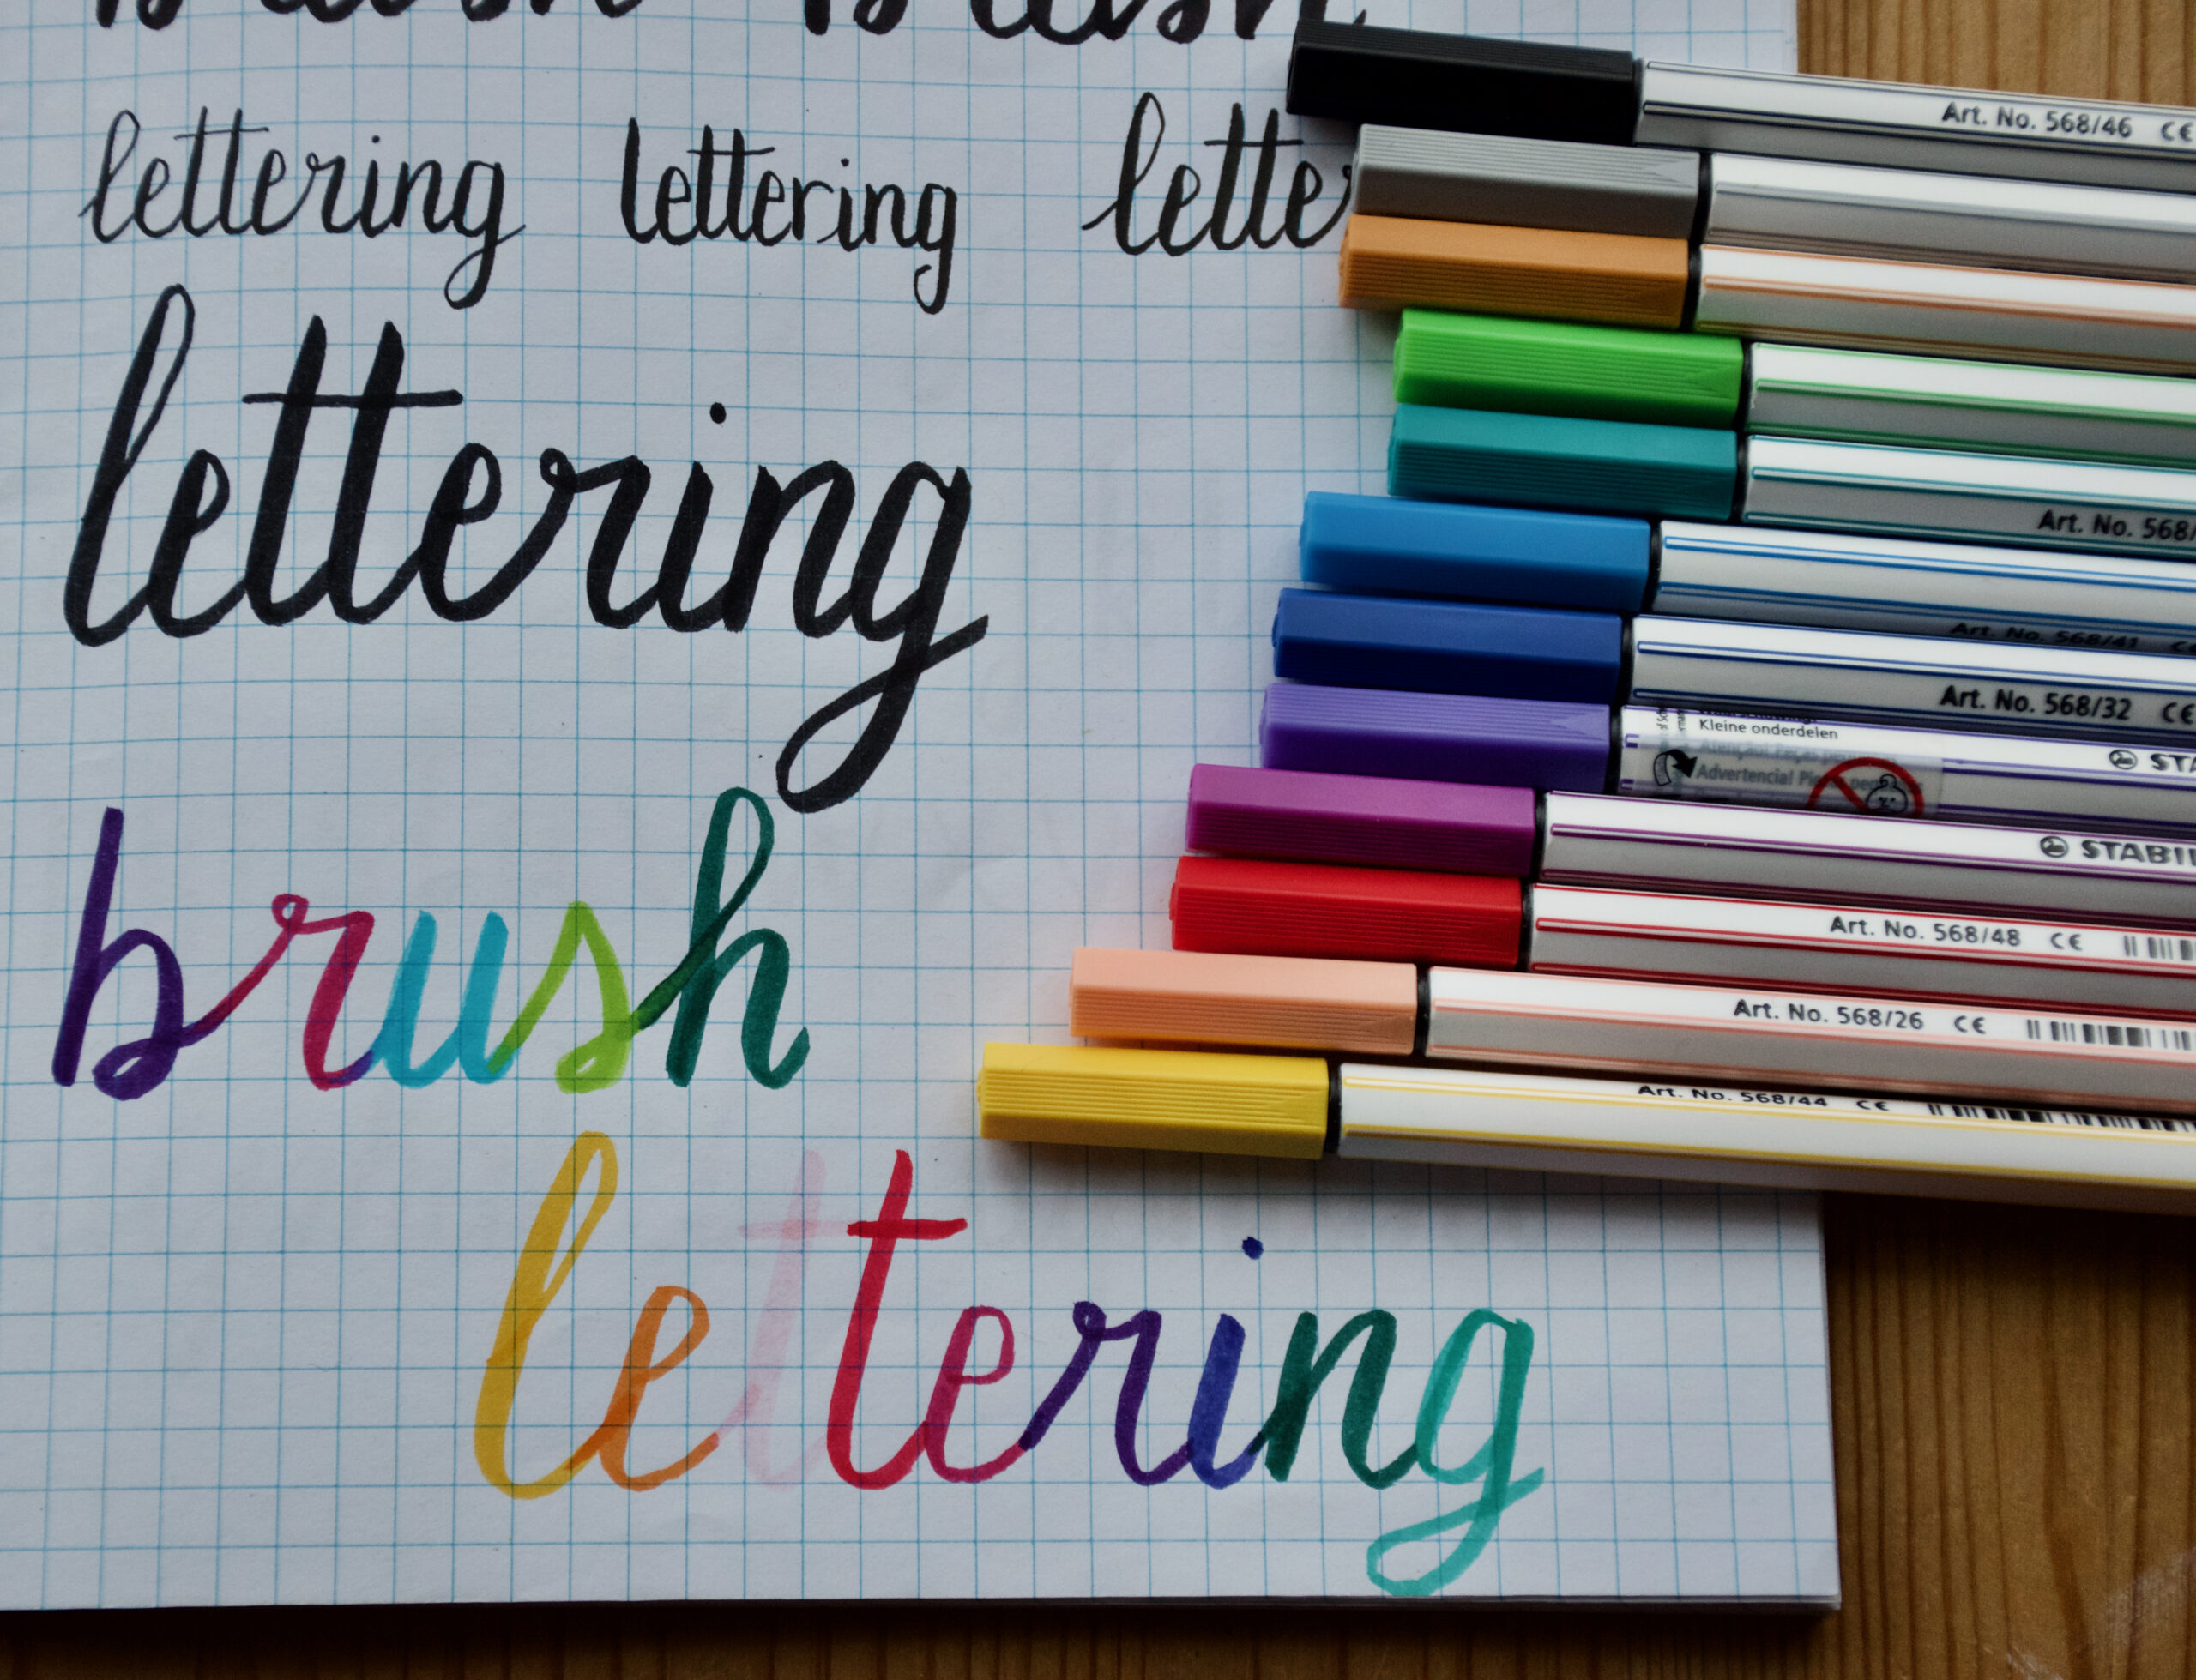 brush brush
lettering lettering lette
lettering
brush
lettering
Art. No. 568/46 CE
Art. No. 568/
Art. No. 568/41
Art. No. 568/32 CE
Kleine onderdelen
Advertencia!
STABI
Art. No. 568/48 CE
Art. No. 568/26 CE
Art. No. 568/44 CE